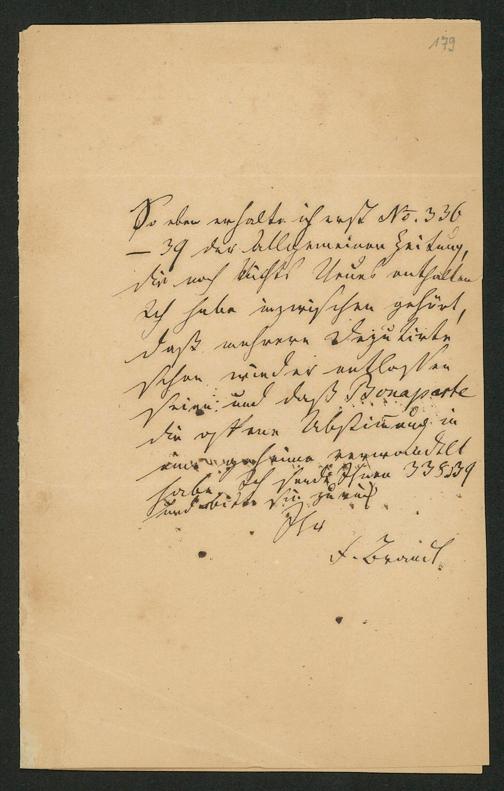 179
So eben erhalte ich erst No. 336
— 39 der Allgemeinen Zeitung,
die noch Nichts Neues enthalten
Ich habe inzwischen gehört,
daß mehrere Deputirte
schon wieder entlassen
seien und daß Bonaparte
die offene Abstimmung in
eine geheime verwandelt
habe. Ich sende Ihnen 338 39
und bitte sie zurück
Ihr
F.